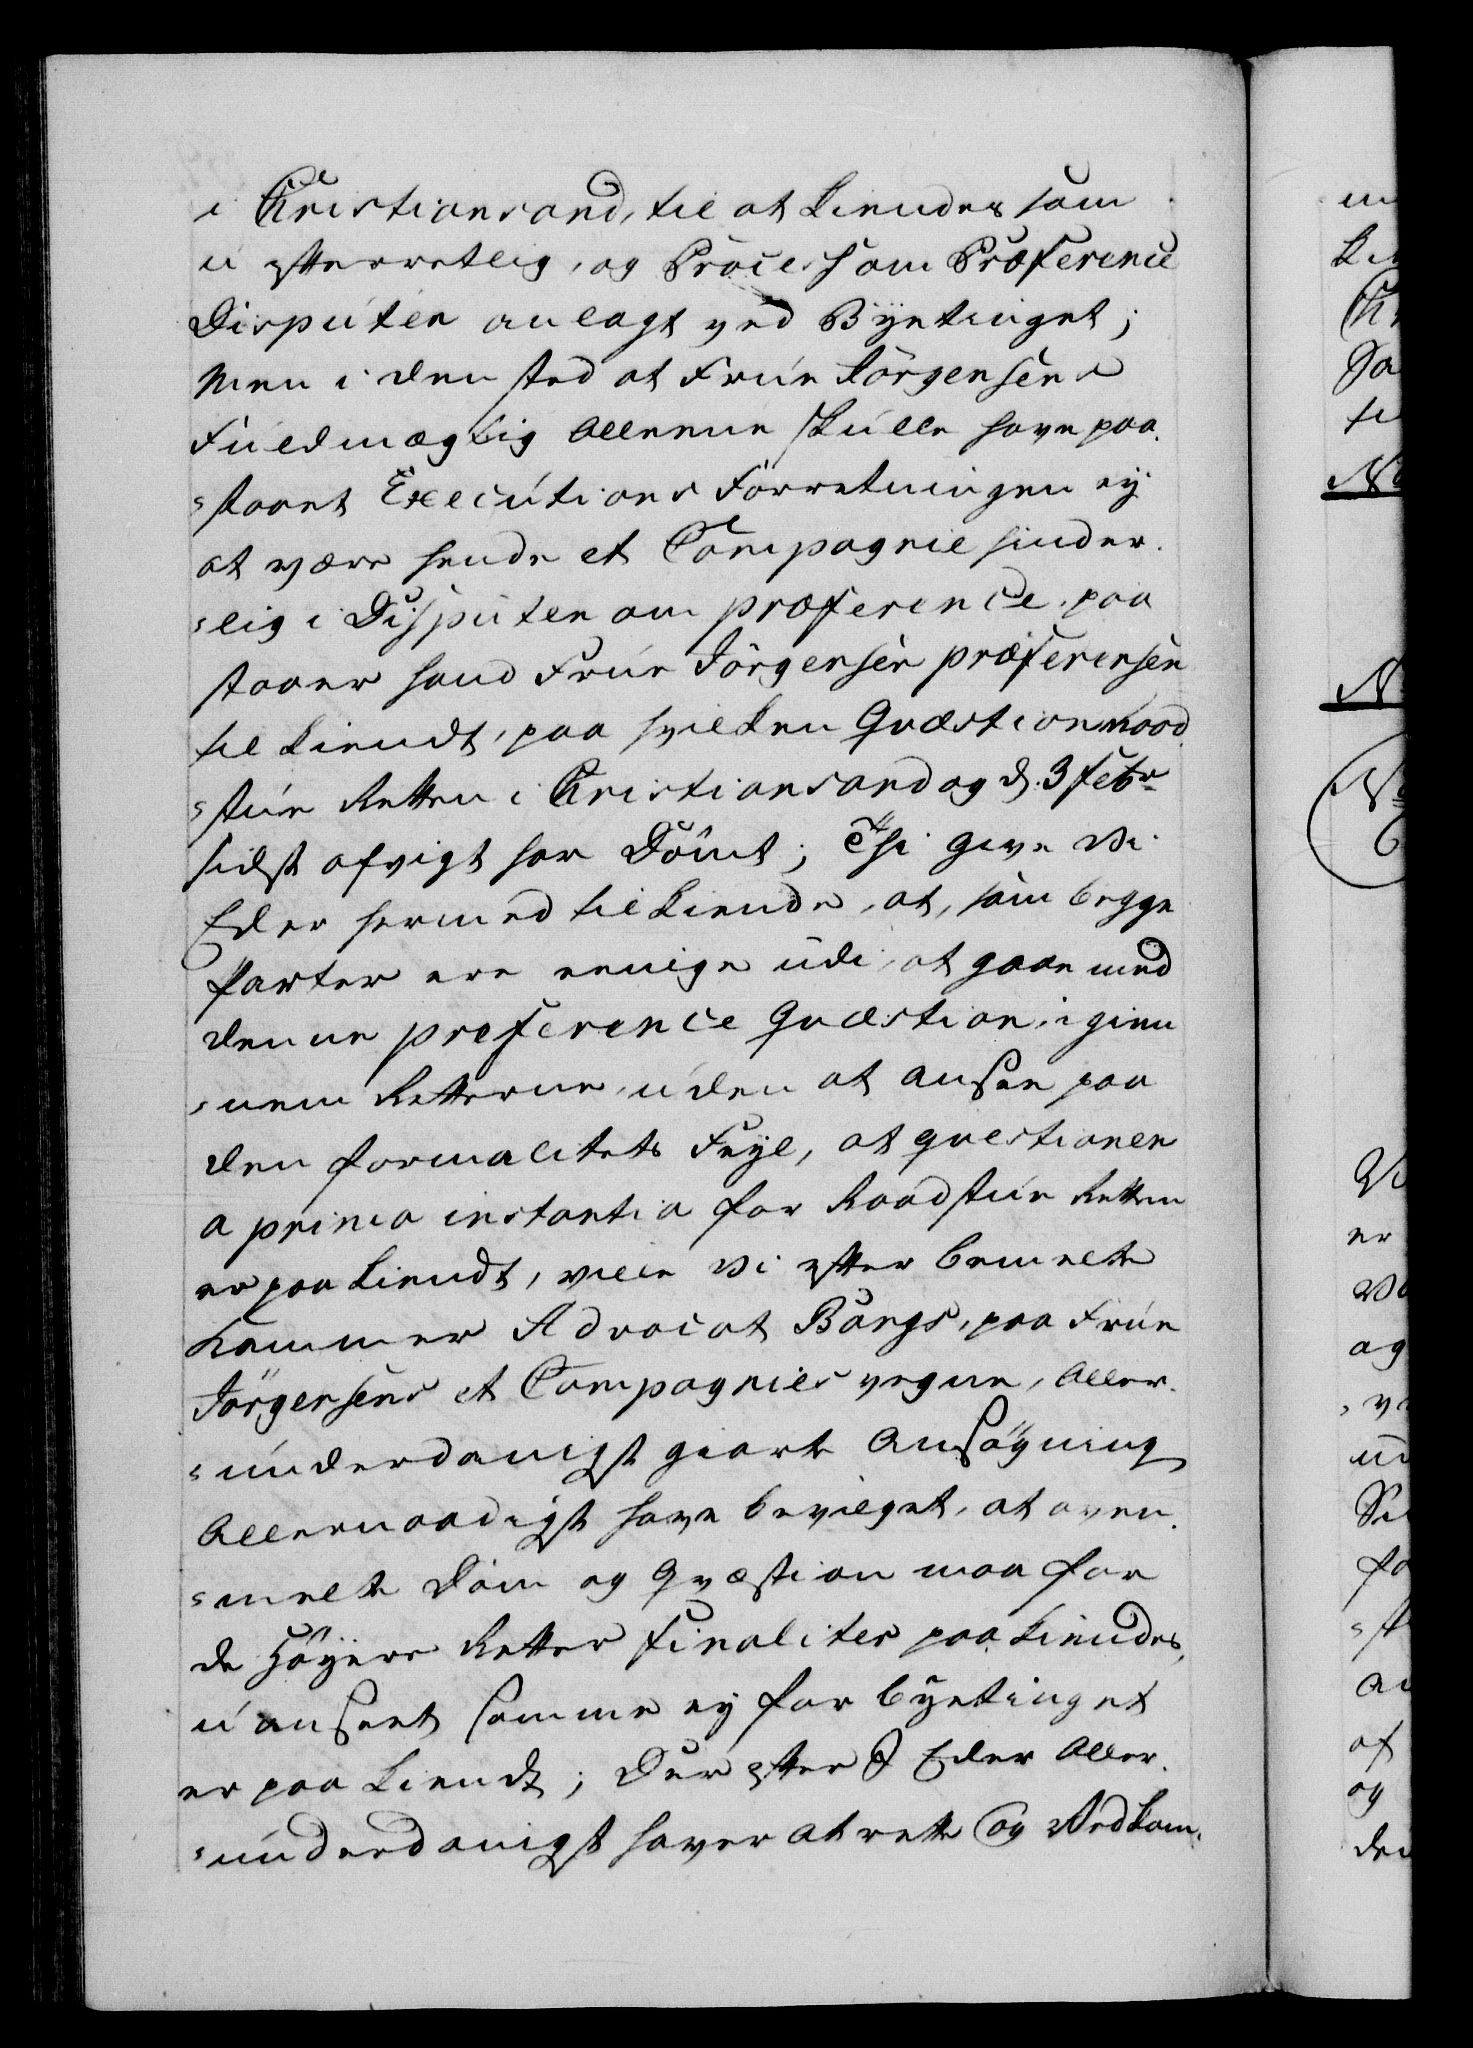 i Christiansand, til at kiendes som
u efterretlig, og Process om Præference
Disputen anlagt ved Byetinget;
Men i den sted at Frue Jörgensens
Fuldmægtig Alleene skulle have paa-
-staaet Executions Forretningen ey
at være hende et Compagnie hinder-
-lig i Disputen om præference, paa
staaer hand Frue Jörgensen præferensen
til kiendt, paa hvilken Qvæstion Raad
-stue Retten i Christiansand og d. 3 Febr
sidst afvigt har Dömt; Thi give Vi
Eder hermed tilkiende, at, som begge
Parter ere eenige udi, at gaae med
denne preference Qvæstion, igien-
-nem Retterne, uden at ansee paa
den formalitets Feyl, at qvestionen
a prima instantia for Raadstue Retten
er paa kiendt, ville Vi efter bemelte
Kammer Advocat Bangs, paa Frue
Jörgensens et Compagnies vegne, Aller-
-underdanigst giorte Ansögning
Allernaadigst have bevilget, at oven-
-melte Dom og Qvæstion maa for
de Höyere Retter finaliter paa kiendes,
uanseet samme ey for byetinget
er paa kiendt; Der efter I Eder Aller-
-underdanigst haver at rette Og Vedkom-